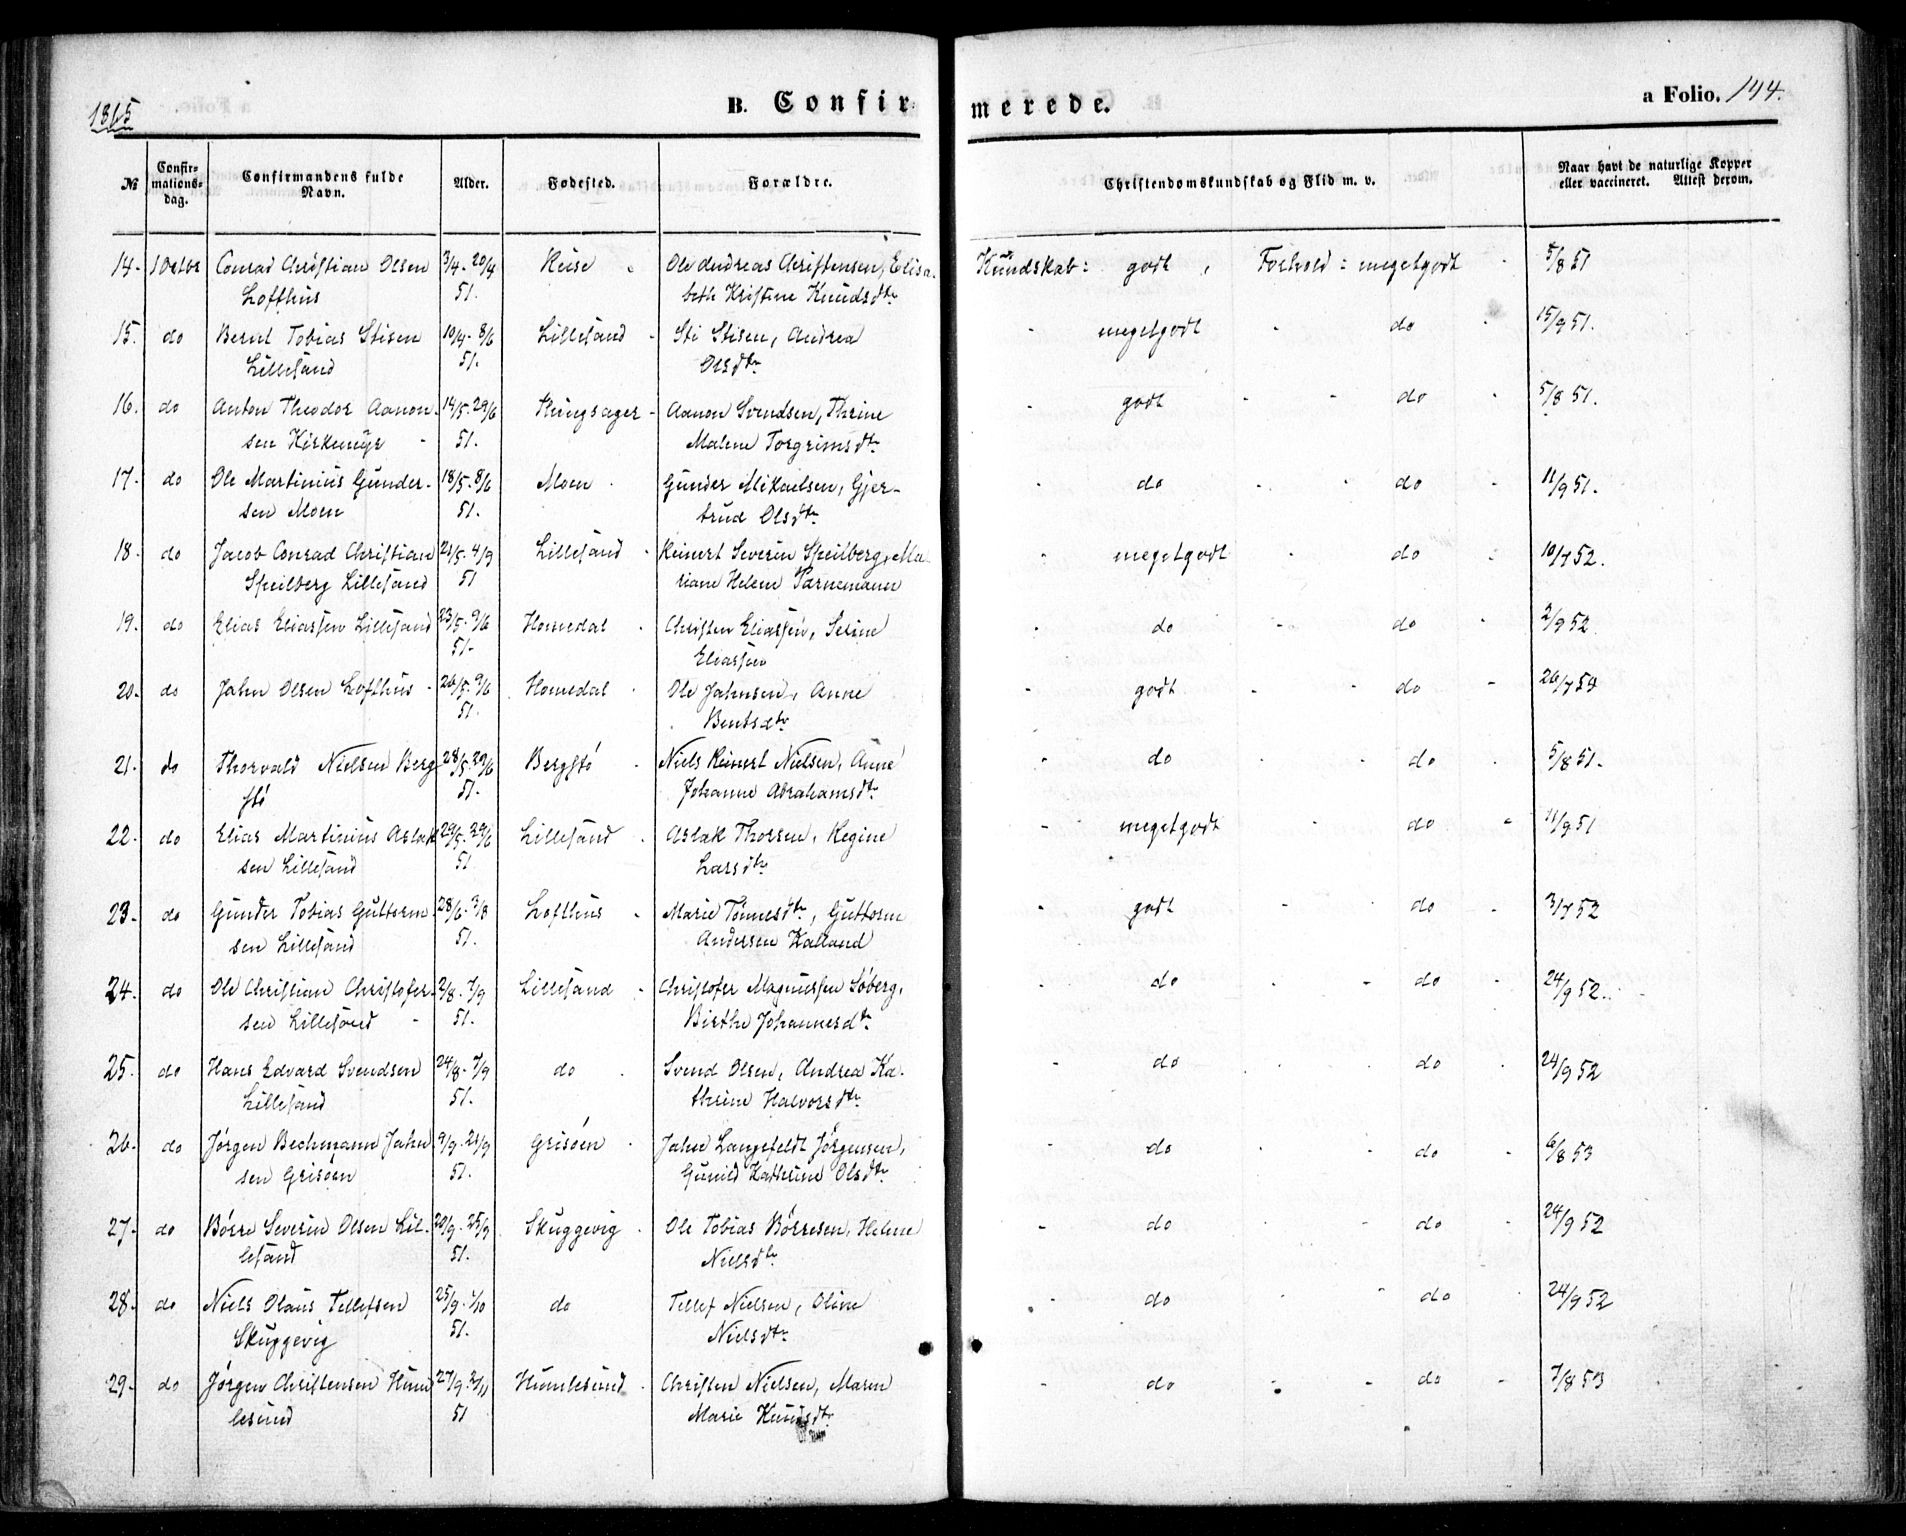 1865
B. Confirmerede.
a Folio. 144.
№ Confirmationsdag. Confirmandens fulde Navn. Alder. Fødested. Forældre. Christendomskundskab og Flid m. v. Naar havt de naturlige Kopper eller vaccineret. Attest derom.
14. 1 Octbr Conrad Christian Olsen 3/4. 20/4 Heise Ole Andreas Christensen, Elisa- Kundskab: godt, Forhold: megetgodt 5/8 51
Lofthus 51. beth Kristine Knudsdtr
15. do Bernt Tobias Stisen 10/4. 8/6 Lillesand Sti Stisen, Andrea megetgodt do 15/9 51.
Lillesand 51. Olsdtr
16. do Anton Theodor Aanon- 14/5. 29/6 Kungsager Aanon Svendsen, Thrine godt do 5/8 51.
sen Kirkemyr 51. Malene Torgrimsdtr
17. do Ole Martinius Gunder- 18/5. 8/6 Moen Gunder Mikaelsen, Gjer- do do 11/9 51.
sen Moen 51. trud Olsdtr
18. do Jacob Conrad Christian 21/5. 4/9 Lillesand Reinert Severin Speilberg, Ma- megetgodt do 10/7 52.
Speilberg Lillesand 51 riane Helene Parnemann
19. do Elias Eliassen Lillesand 23/5. 9/6 Homedal Christen Eliassen, Serine do do 2/9 52
51. Eliassen
20. do Jahn Olsen Lofthus 26/5. 9/6 Homedal Ole Jahnsen, Anne godt do 26/7 54
51. Bentsdtr
21. do Thorvald Nielsen Berg- 28/5. 29/6 Bergstø Niels Reinert Nielsen, Anne do do 5/8 51.
stø 51. Johanne Abrahamsdtr
22. do Elias Martinius Aslak- 29/5. 29/6 Lillesand Aslak Thorsen, Regine megetgodt do 11/9 51
sen Lillesand 51 Larsdtr
23. do Gunder Tobias Guttorm- 28/6. 3/8 Lofthus Marie Tønnesdtr, Guttorm godt do 3/7 52
sen Lillesand 51. Andersen Kalland
24. do Ole Christian Christofer- 2/8. 7/9 Lillesand Christofer Magnussen Søberg, do do 24/9 52.
sen Lillesand 51. Birthe Johannesdtr
25. do Hans Edvard Svendsen 24/8. 7/9 do Svend Olsen, Andrea Ka- do do 24/9 52
Lillesand 51. thrine Halvorsdtr
26. do Jørgen Bechmann Jahn- 9/9. 21/9 Grisøen Jahn Langefeldt Jørgensen, do do 6/8 53
sen Grisøen 51. Gunild Kathrine Olsdtr
27. do Børre Severin Olsen Lil- 20/9. 25/9 Skuggevig Ole Tobias Børresen, Helene do do 24/9 52
lesand 51. Nielsdtr
28. do Niels Olaus Tellefsen 25/9. 1/10 do Tellef Nielsen, Oline do do 24/9 52
Skuggevig 51. Nielsdtr
29. do Jørgen Christensen Hum- 27/9. 2/11 Humlesund Christen Nielsen, Maren do do 7/8 53
lesund 51 Marie Knudsdtr